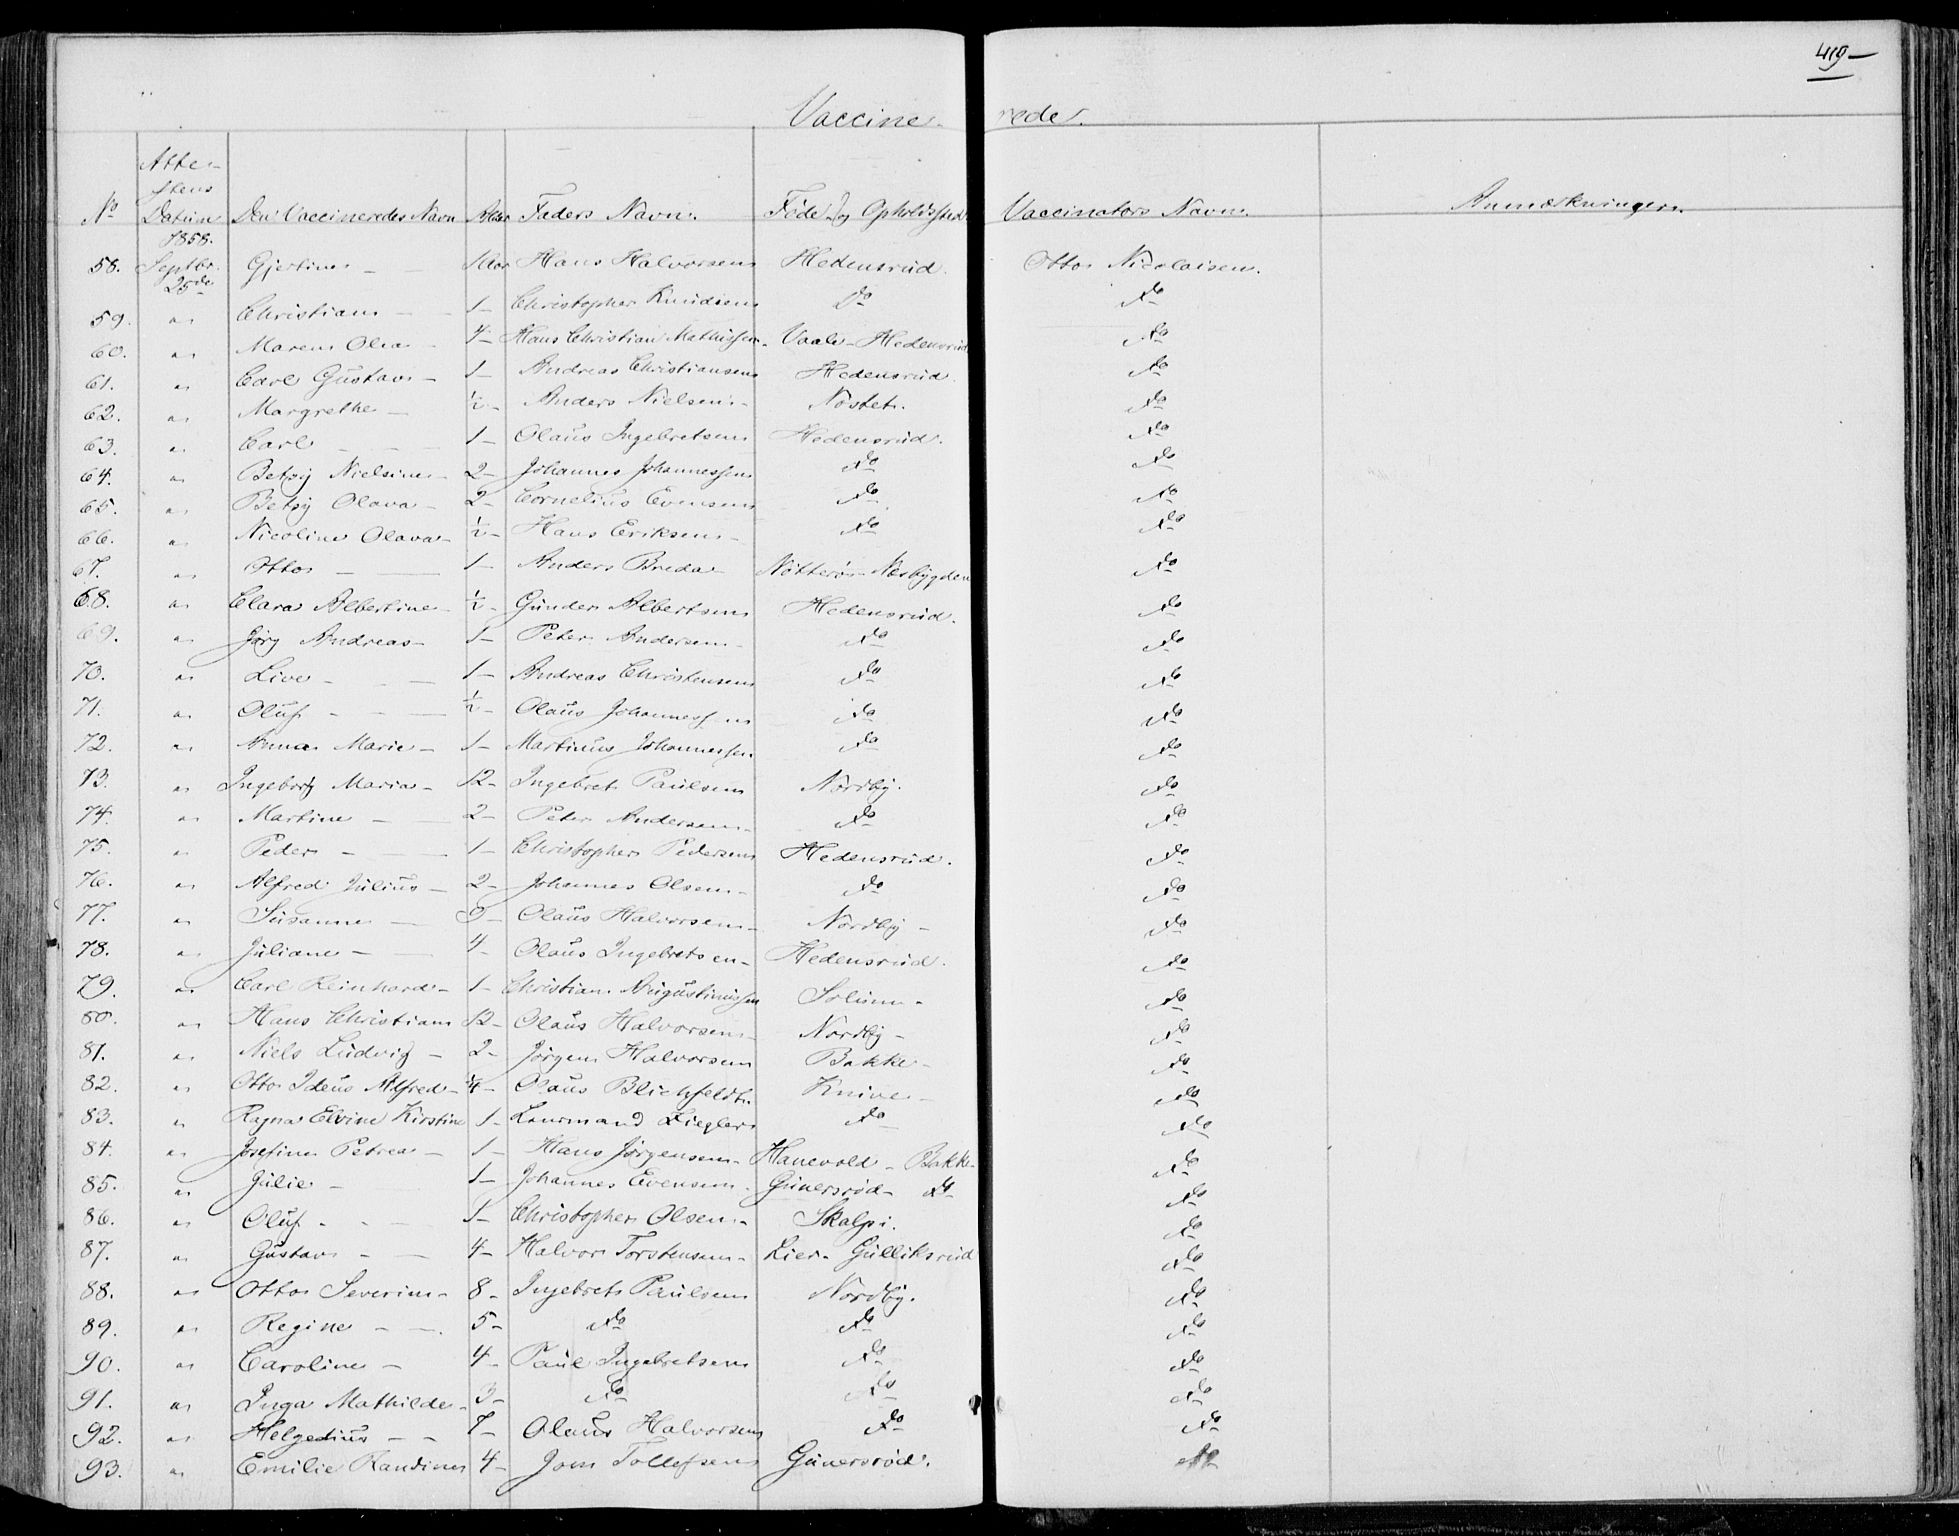 419
Vaccinerede.
No Attestens Datum Den Vaccineredes Navn Alder Faders Navn. Føde- og Opholdssted Vaccinators Navn. Anmærkninger.
1858.
58. Septbr. 25de Gjertine - 1 Aar Hans Halvorsen Hedensrud. Otto Nicolaisen.
59. " Christian - 1 - Christopher Knudsen Do Do
60. " Maren Olea - 4 - Hans Christian Mathissen - Vaale - Hedensrud Do
61. " Carl Gustav - 1 - Andreas Christiansen Hedensrud. Do
62. " Margrethe - 1/2 - Anders Nielsen - Nøstet. Do
63. " Carl - 1 - Olaus Ingebretsen Hedensrud. Do
64. " Betsy Nielsine - 2 - Johannes Johannessen Do Do
65. " Betsy Olava - 2 - Cornelius Evensen Do Do
66. " Nicoline Olava - 1/2 - Hans Eriksen - Do Do
67. " Otto - 1 - Anders Breda Nøtterø - Næsbygden Do
68. " Clara Albertine - 1/2 - Gunder Albertsen Hedensrud. Do
69. " Jørg Andreas - 1 - Peter Andersen - Do Do
70. " Live - 1 - Andreas Christensen Do Do
71. " Oluf - 1/2 - Olaus Johannessen Do Do
72. " Anna Marie - 1 - Martinus Johannessen Do Do
73. " Ingeborg Maria - 12 - Ingebret Paulsen Nordby. Do
74. " Martine - 2 - Peter Andersen - Do Do
75. " Peder - 1 - Christopher Pedersen Hedensrud. Do
76. " Alfred Julius - 2 - Johannes Olsen - Do Do
77. " Susanne - Olaus Halvorsen - Nordby - Do
78. " Juliane - 4 - Olaus Ingebretsen - Hedensrud. Do
79. " Carl Reinhard - 1 - Christian Augustinussen Solum - Do
80. " Hans Christian 12 - Olaus Halvorsen Nordby - Do
81. " Niels Ludvig - 2 - Jørgen Halvorsen Bakke - Do
82. " Otto Ideus Alfred - 1/4 - Olaus Blichfeldt. Knive - Do
83. " Ragna Elvine Kirstine 1 - Lensmand Ziegler Do Do
84. " Josefine Petrea - 1 - Hans Jørgensen - Hanevold - Bakke - Do
85. " Julie - 1 - Johannes Evensen - Gunersrød - Do Do
86. " Oluf - 1 - Christopher Olsen - Skalpi. Do
87. " Gustav - 4 - Halvor Torstensen - Lier - Gulliksrud Do
88. " Otto Severin - 8 - Ingebret Paulsen Nordby. Do
89. " Regine - 5 - Do Do Do
90. " Caroline - 4 - Paul Ingebretsen Do Do
91. " Inga Mathilde - 3 - Do Do Do
92. " Helgesius - 7 - Olaus Halvorsen Do Do
93. " Emilie Randine 4 - Jom Tollefsen Gunersrød. Do